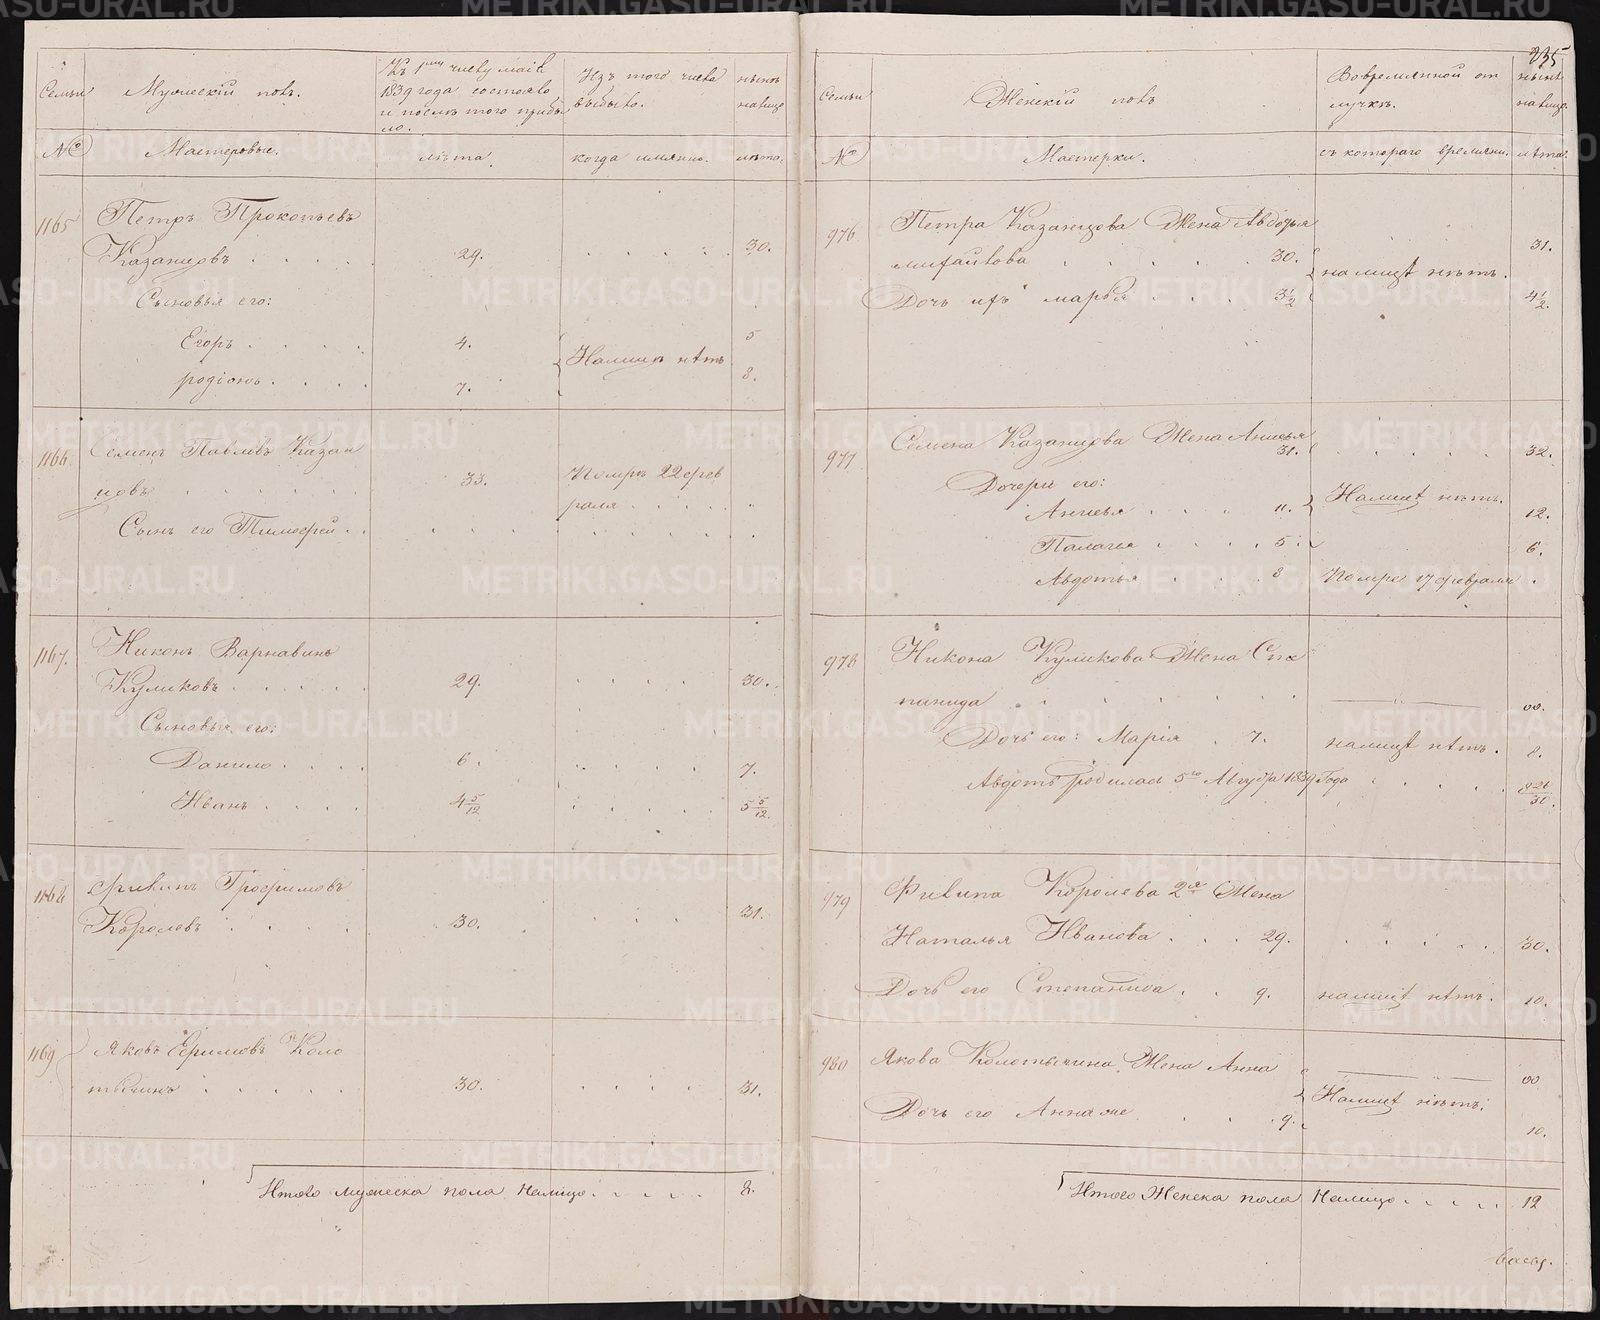 Семьи
Мужескій полъ.
Къ 1му числу маія
1839 года состояло
и послѣ того прибы
ло.
Изъ того числа
выбыло.
нынѣ
налицо
№
Мастеровые.
лѣта.
когда имянно.
лѣта.
1165
Петръ Прокопьевъ
Казанцовъ . . . . . 29. . . . . . 30.
Сыновья его:
Егоръ . . . . 4. 5
Налицо нѣтъ
родіонъ . . . . 7. 8.
1166
Семенъ Павловъ Казан
цовъ . . . . . . 33.
Померъ 22 фев
раля . . . . .
Сынъ его Тимофей . .
1167.
Никонъ Варнавинъ
Куликовъ . . . . . 29. . . . . 30.
Сыновья его:
Данило . . . . 6. . . . . 7.
Иванъ . . . . 4 5/12 . . . . 5 5/12.
1168
Филипъ Трофимовъ
Королевъ . . . . 30. . . . . 31.
1169
Яковъ Ефимовъ Коло
тычинъ . . . . . 30. . . . . 31.
Итого мужеска пола налицо . . . . . 8.
235
Семьи
Женскій полъ
Вовремянной от
лучкѣ.
нынѣ
налицо.
№
Мастерки.
съ котораго времяни.
лѣта.
976
Петра Казанцова Жена Авдотья
михайлова . . . . . 30. 31.
налицо нѣтъ.
Дочь ихъ марья . . . . 3 1/2 4 1/2.
977
Семена Казанцова Жена Анисья
31. . . . . . 32.
Дочери его:
Налицо нѣтъ.
Анисья . . . 11. 12.
Палагея . . . . 5 . 6.
Авдотья . . . . 8 Померла 17 февраля .
978
Никона Куликова Жена Сте
панида . . . . . . 00.
Дочь его: Марія . 7. налицо нѣтъ. 8.
Авдотья родилась 5го Августа 1839 Года . . . . .
979
Филипа Королева 2я Жена
Наталья Иванова . . . 29. . . . . . 30.
Дочь его Степанида . . 9. налицо нѣтъ. 10.
980
Якова Колотычина Жена Анна 00
Налицо нѣтъ.
Дочь его Анна же . . . 9. 10.
Итого Женска пола Налицо . . . . . 12
METRIKI.GASO-URAL.RU